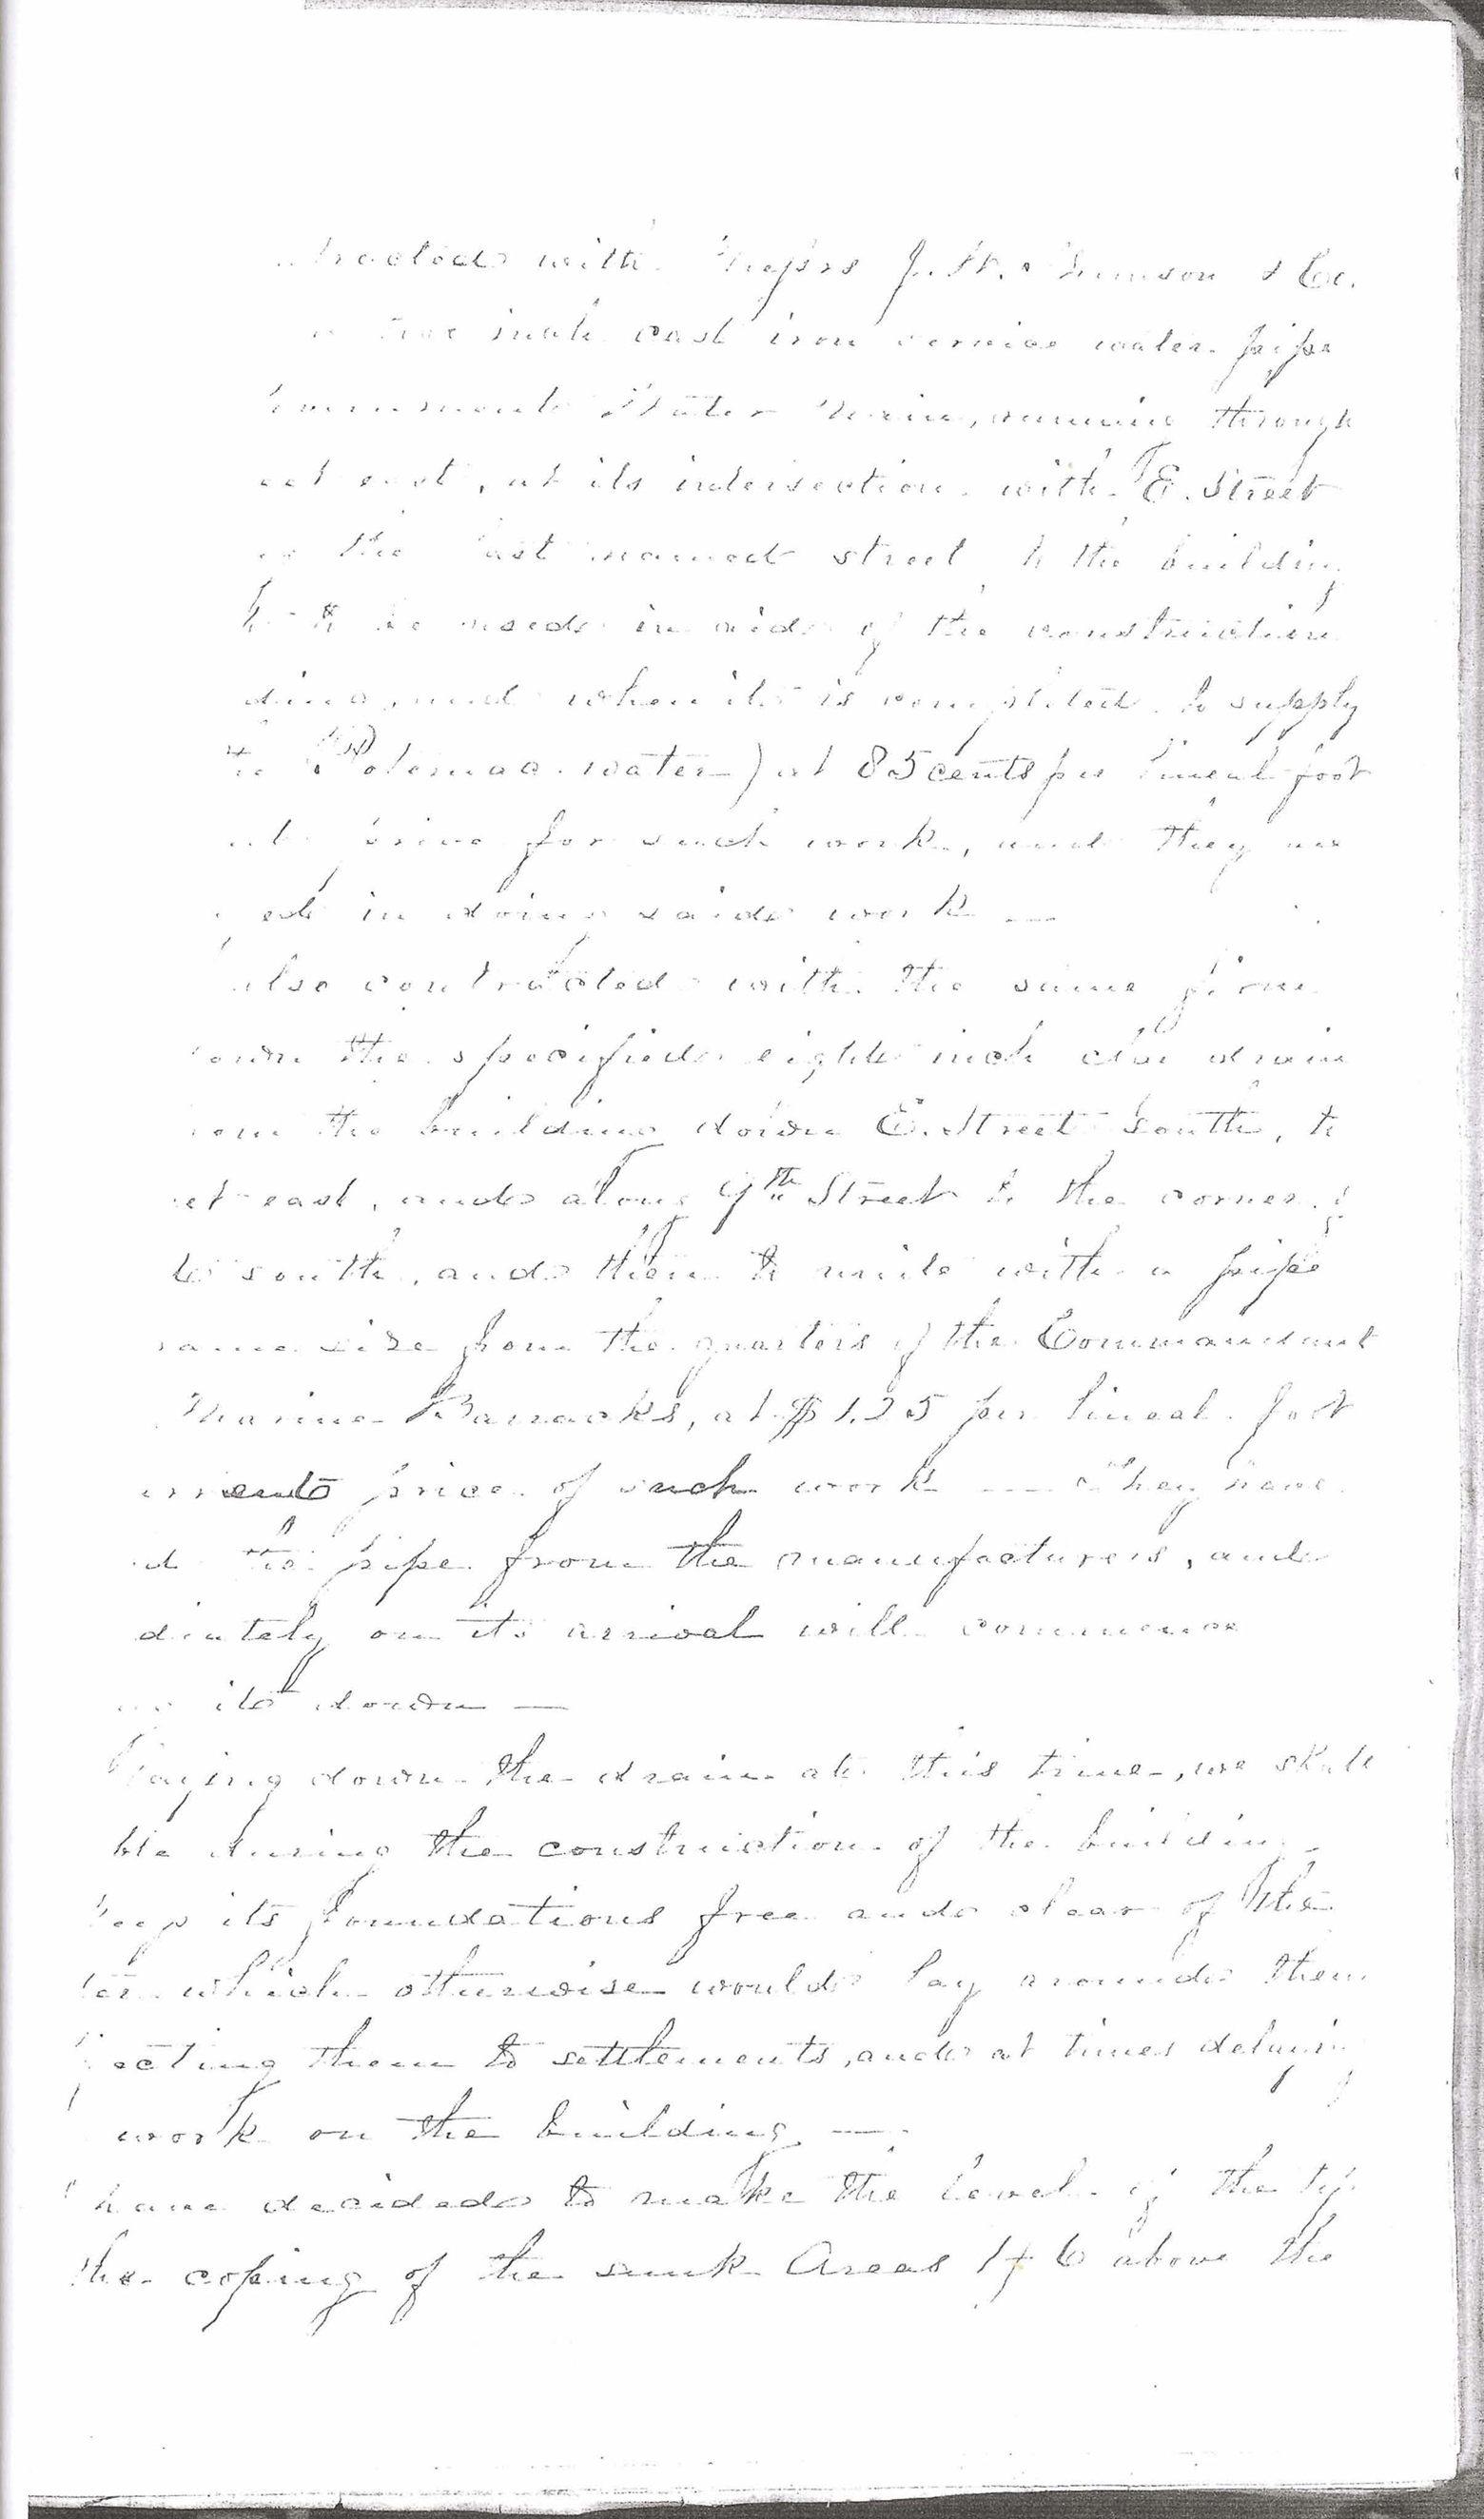 tracted with Messrs J. W. Thomson & Co.
inch cast iron service water pipe
Water Main, running through
east, at its intersection with E. Street
the last named street to the building
to be used in aid of the construction
and when it is completed to supply
Potomac water) at 85 cents per lineal foot
price for such work, and they are
in doing said work —
also contracted with the same firm
down the specified eight inch drain
the building down E. Street South, to
east, and along 9th Street to the corner of
south, and then to unite with a pipe
same size from the quarters of the Commandant
Marine Barracks, at $1.25 per lineal foot
price of such work — They have
d the pipe from the manufacturers, and
diately on its arrival will commence
it down —
laying down the drain at this time, we shall
ble during the construction of the building
keep its foundations free and clear of the
ter which otherwise would lay around them
jecting them to settlements, and at times delaying
work on the building —
have decided to make the level of the top
the coping of the sunk Areas 1 f 6 above the